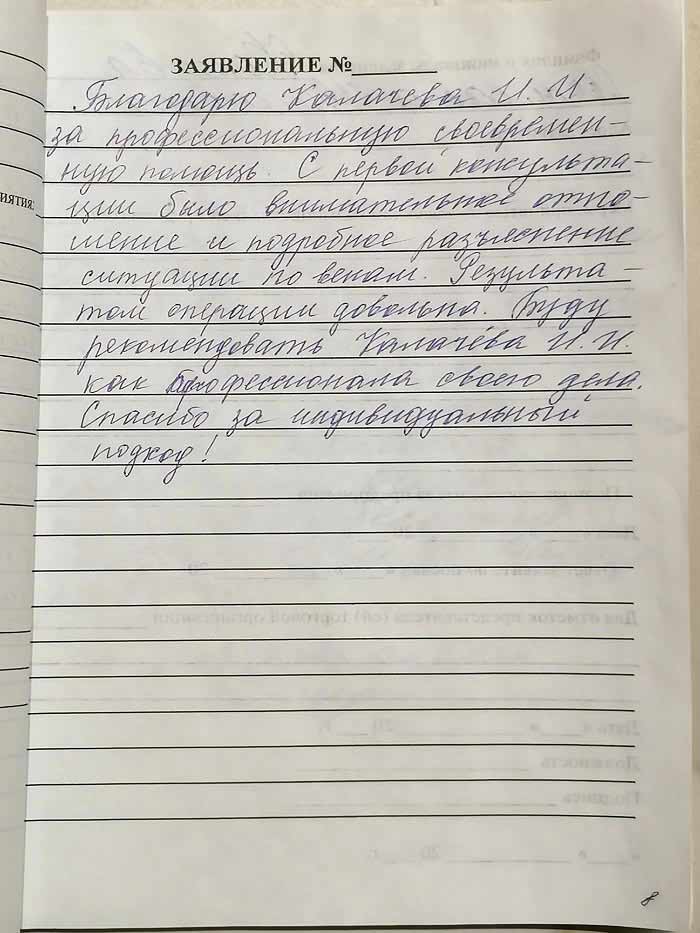 ЗАЯВЛЕНИЕ №______
Благодарю Калачёва И.И.
за профессиональную своевремен-
ную помощь. С первой консульта-
ции было внимательное отно-
шение и подробное разъяснение
ситуации по венам. Результа-
том операции довольна. Буду
рекомендовать Калачёва И.И.
как профессионала своего дела.
Спасибо за индивидуальный
подход!
иятия:
8